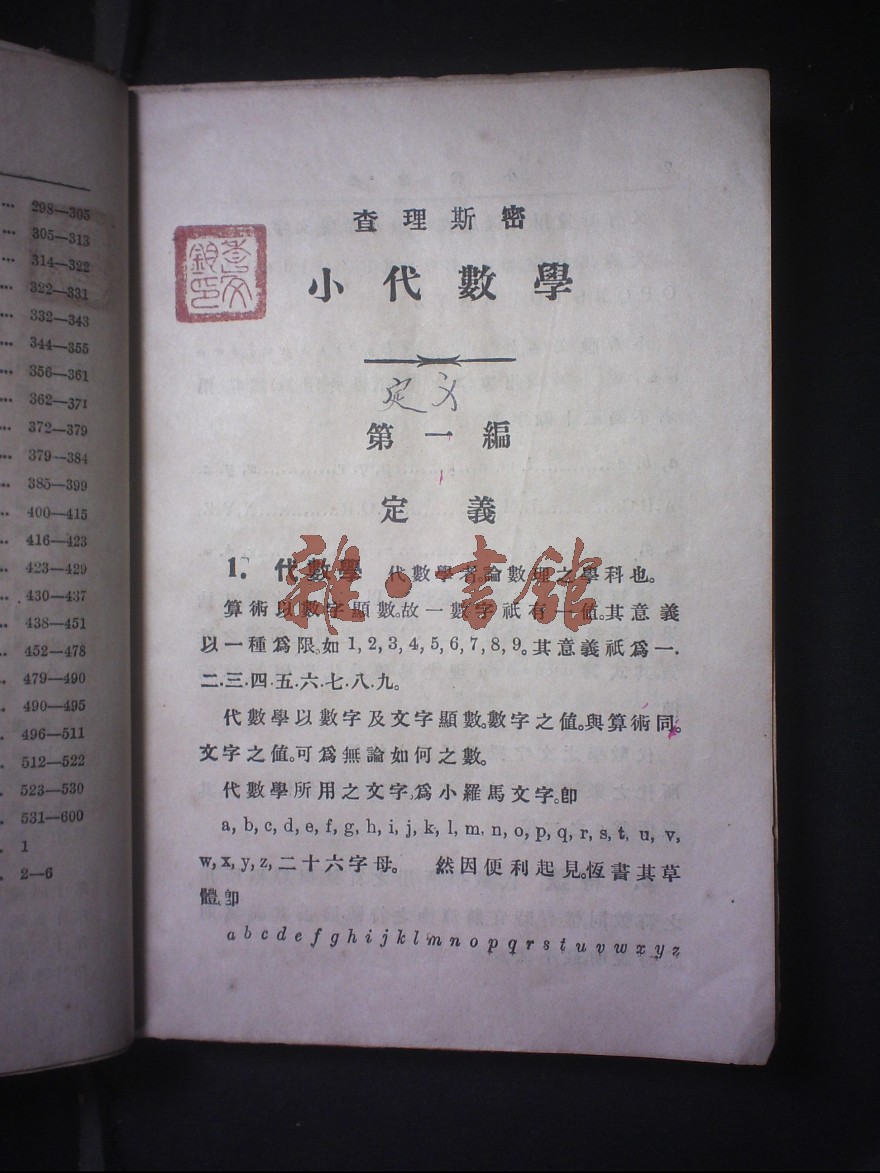 298—305
305—313
314—322
322—331
332—343
344—355
356—361
362—371
372—379
379—384
385—399
400—415
416—423
423—429
430—437
438—451
452—478
479—490
490—495
496—511
512—522
523—530
531—600
1
2—6
查理斯密
小代數學
定义
第一編
定義
1. 代數學 代數學者,論數理之學科也。
算術以數字顯數。故一數字祇有一値。其意義
以一種爲限。如 1, 2, 3, 4, 5, 6, 7, 8, 9。其意義祇爲一.
二.三.四.五.六.七.八.九。
代數學以數字及文字顯數。數字之値。與算術同。
文字之値。可爲無論如何之數。
代數學所用之文字,爲小羅馬文字。卽
a, b, c, d, e, f, g, h, i, j, k, l, m, n, o, p, q, r, s, t, u, v,
w, x, y, z, 二十六字母。 然因便利起見。恆書其草
體。卽
a b c d e f g h i j k l m n o p q r s t u v w x y z
雜·書館